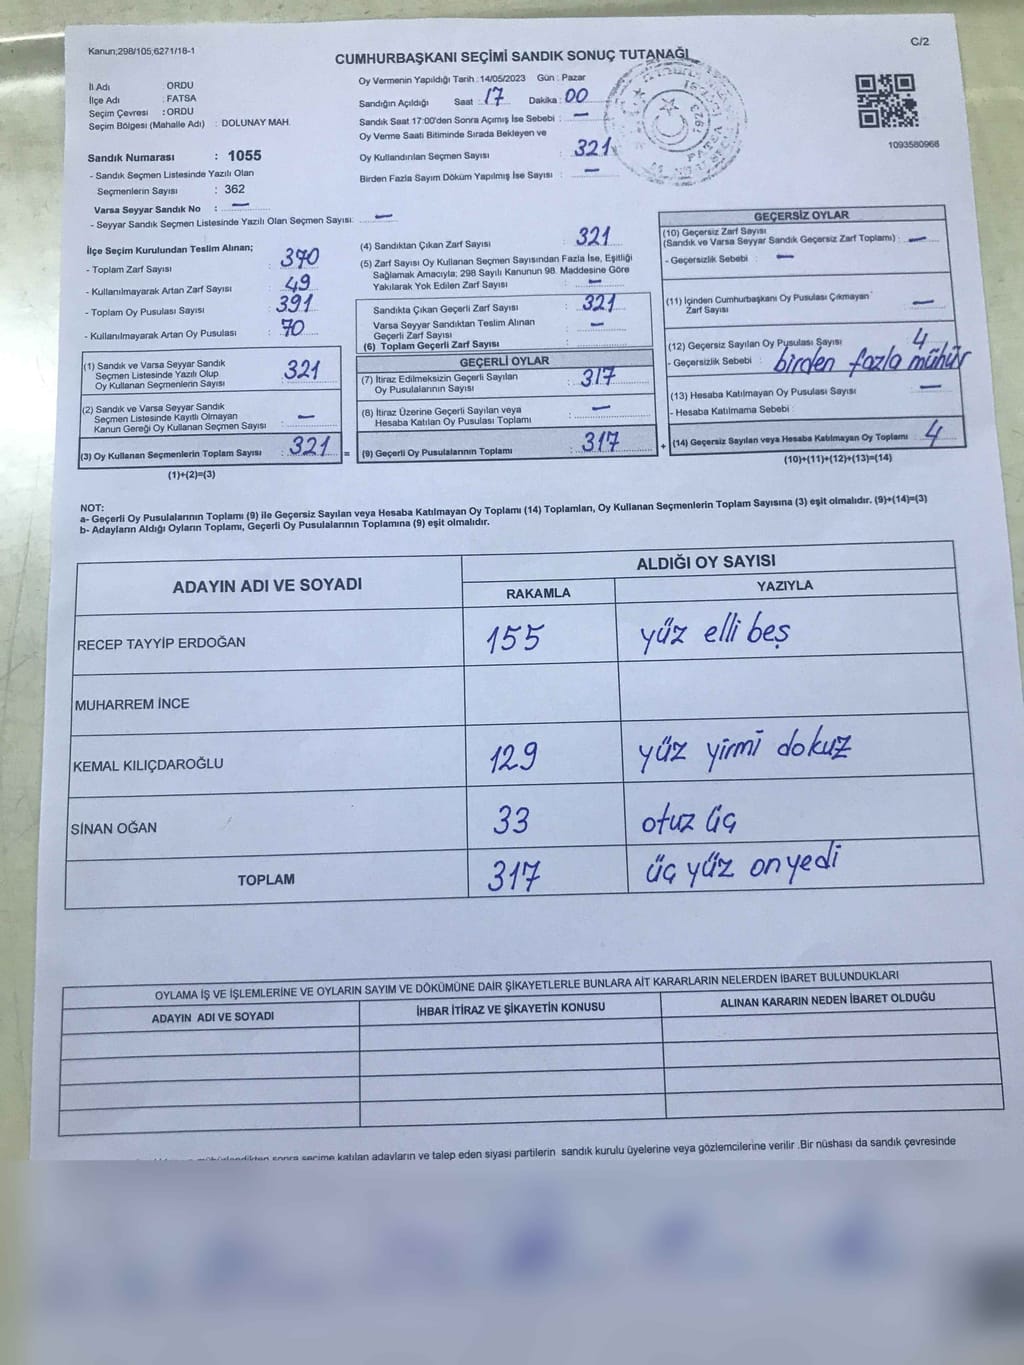 Kanun;298/105;6271/18-1
C/2
CUMHURBAŞKANI SEÇİMİ SANDIK SONUÇ TUTANAĞI
İl Adı : ORDU
İlçe Adı : FATSA
Seçim Çevresi : ORDU
Seçim Bölgesi (Mahalle Adı) : DOLUNAY MAH.
Oy Vermenin Yapıldığı Tarih : 14/05/2023 Gün : Pazar
Sandığın Açıldığı Saat : 17 Dakika : 00
Sandık Saat 17:00'den Sonra Açımış İse Sebebi : —
Oy Verme Saati Bitiminde Sırada Bekleyen ve
Oy Kullandırılan Seçmen Sayısı : 321
Birden Fazla Sayım Döküm Yapılmış İse Sayısı : —
FATSA
1093580968
Sandık Numarası : 1055
- Sandık Seçmen Listesinde Yazılı Olan
Seçmenlerin Sayısı : 362
Varsa Seyyar Sandık No : —
- Seyyar Sandık Seçmen Listesinde Yazılı Olan Seçmen Sayısı: —
İlçe Seçim Kurulundan Teslim Alınan;
- Toplam Zarf Sayısı : 370
- Kullanılmayarak Artan Zarf Sayısı : 49
- Toplam Oy Pusulası Sayısı : 391
- Kullanılmayarak Artan Oy Pusulası : 70
(1) Sandık ve Varsa Seyyar Sandık
Seçmen Listesinde Yazılı Olup
Oy Kullanan Seçmenlerin Sayısı : 321
(2) Sandık ve Varsa Seyyar Sandık
Seçmen Listesinde Kayıtlı Olmayan
Kanun Gereği Oy Kullanan Seçmen Sayısı : —
(3) Oy Kullanan Seçmenlerin Toplam Sayısı : 321 =
(1)+(2)=(3)
(4) Sandıktan Çıkan Zarf Sayısı : 321
(5) Zarf Sayısı Oy Kullanan Seçmen Sayısından Fazla İse, Eşitliği
Sağlamak Amacıyla; 298 Sayılı Kanunun 98. Maddesine Göre
Yakılarak Yok Edilen Zarf Sayısı : —
Sandıkta Çıkan Geçerli Zarf Sayısı : 321
Varsa Seyyar Sandıktan Teslim Alınan
Geçerli Zarf Sayısı : —
(6) Toplam Geçerli Zarf Sayısı :
GEÇERLİ OYLAR
(7) İtiraz Edilmeksizin Geçerli Sayılan
Oy Pusulalarının Sayısı : 317
(8) İtiraz Üzerine Geçerli Sayılan veya
Hesaba Katılan Oy Pusulası Toplamı : —
(9) Geçerli Oy Pusulalarının Toplamı : 317 +
GEÇERSİZ OYLAR
(10) Geçersiz Zarf Sayısı
(Sandık ve Varsa Seyyar Sandık Geçersiz Zarf Toplamı) : —
- Geçersizlik Sebebi : —
(11) İçinden Cumhurbaşkanı Oy Pusulası Çıkmayan
Zarf Sayısı —
(12) Geçersiz Sayılan Oy Pusulası Sayısı 4
- Geçersizlik Sebebi : birden fazla mühür
(13) Hesaba Katılmayan Oy Pusulası Sayısı —
- Hesaba Katılmama Sebebi :
(14) Geçersiz Sayılan veya Hesaba Katılmayan Oy Toplamı 4
(10)+(11)+(12)+(13)=(14)
NOT:
a- Geçerli Oy Pusulalarının Toplamı (9) ile Geçersiz Sayılan veya Hesaba Katılmayan Oy Toplamı (14) Toplamları, Oy Kullanan Seçmenlerin Toplam Sayısına (3) eşit olmalıdır. (9)+(14)=(3)
b- Adayların Aldığı Oyların Toplamı, Geçerli Oy Pusulalarının Toplamına (9) eşit olmalıdır.
ADAYIN ADI VE SOYADI
ALDIĞI OY SAYISI
RAKAMLA YAZIYLA
RECEP TAYYİP ERDOĞAN 155 yüz elli beş
MUHARREM İNCE
KEMAL KILIÇDAROĞLU 129 yüz yirmi dokuz
SİNAN OĞAN 33 otuz üç
TOPLAM 317 üç yüz onyedi
OYLAMA İŞ VE İŞLEMLERİNE VE OYLARIN SAYIM VE DÖKÜMÜNE DAİR ŞİKAYETLERLE BUNLARA AİT KARARLARIN NELERDEN İBARET BULUNDUKLARI
ADAYIN ADI VE SOYADI İHBAR İTİRAZ VE ŞİKAYETİN KONUSU ALINAN KARARIN NEDEN İBARET OLDUĞU
sonra seçime katılan adayların ve talep eden siyasi partilerin sandık kurulu üyelerine veya gözlemcilerine verilir .Bir nüshası da sandık çevresinde